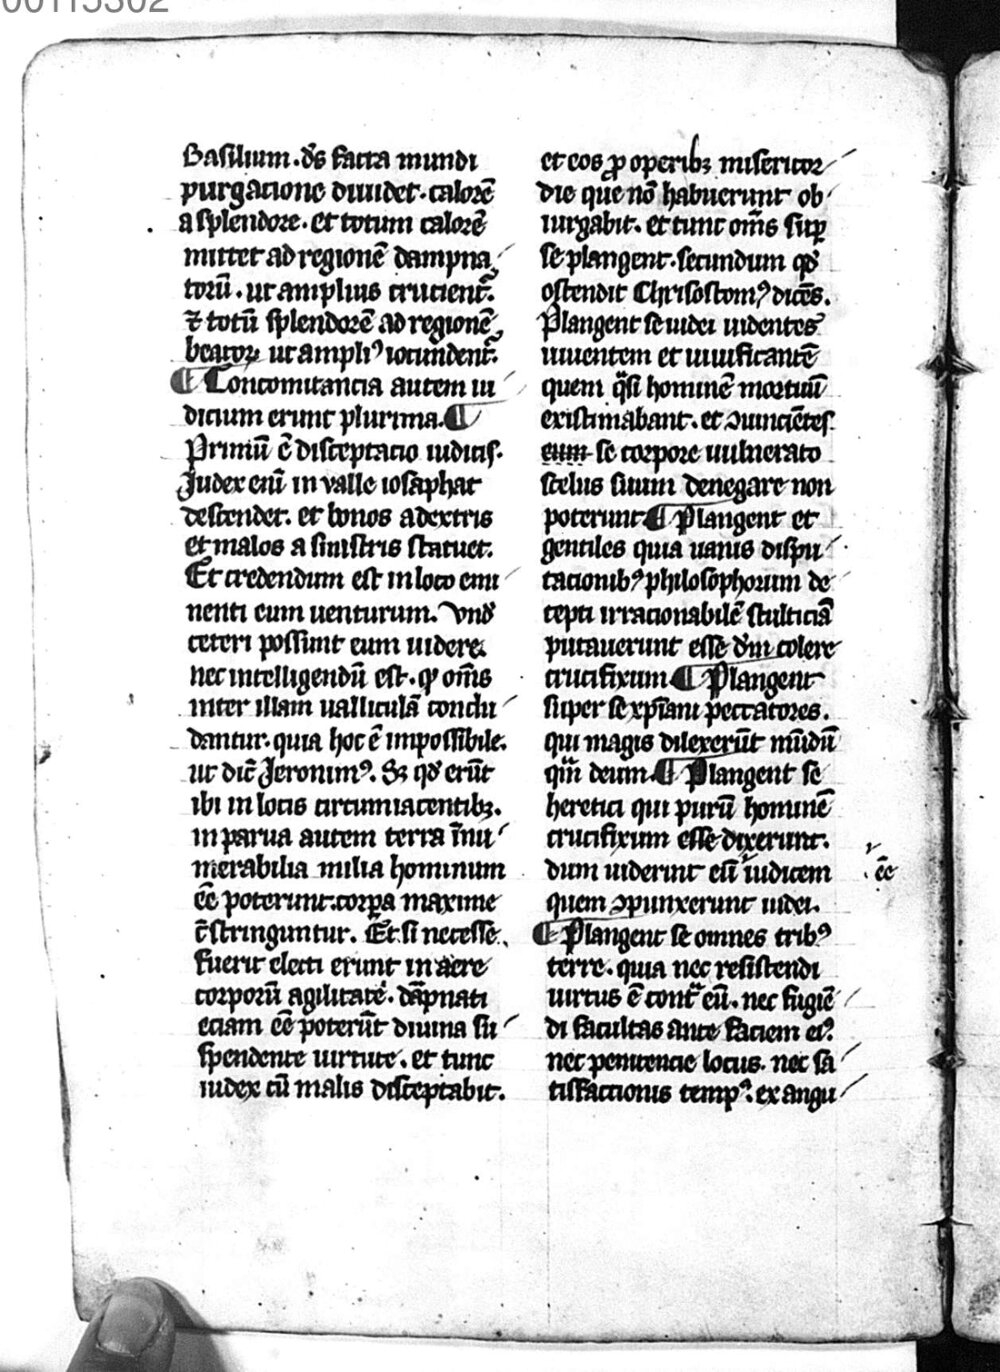 00115302
Basilium. dn̄s facta mundi
purgacione diuidet. calorē
a splendore. et totum calorē
mittet ad regionē dampna
torū. ut amplius crucient᷑.
⁊ totū splendorē ad regionē
beatoꝝ ut ampliꝰ iocundent᷑.
¶ Concomitancia autem iu
dicium erunt plurima. ¶
Primū ē disceptacio iudicis.
Judex enī in valle iosaphat
descendet. et bonos a dextris
et malos a sinistris statuet.
Et credendum est in loco emi
nenti eum uenturum. Vnd̄
ceteri possunt eum uidere.
nec intelligendū est. ꝙ om̄s
inter illam ualliculā conclu
dantur. quia hoc ē impossibile.
ut dic̄ Jeronimꝰ. Sꝫ qd̄ erūt
ibi in locis circumiacentibꝫ.
in parua autem terra īnu
merabilia milia hominum
eē poterunt. corpa maxime
c̄stringuntur. Et si necesse
fuerit electi erunt in aere
corporū agilitate. dāpnati
eciam eē poterūt diuina su
spendente uirtute. et tunc
iudex cū malis disceptabit.
et eos ꝓ operibꝫ misericor
die que nō habuerunt ob
iurgabit. et tunc om̄s suꝑ
se plangent. secundum qd̄
ostendit Chrisostomꝰ dicēs.
Plangent se iudei uidentes
uiuentem et uiuificantē
quem q̈si hominē mortuū
existimabant. et ↄuincētes
eum se corpore uulnerato
scelus suum denegare non
poterunt ¶ Plangent et
gentiles quia uanis dispu
tacionibꝰ philosophorum de
cepti irracionabilē stulticiā
putauerunt esse dm̄ colere
crucifixum ¶ Plangent
super se xp̄iani peccatores.
qui magis dilexerūt mūdū
qm̄ deum. ¶ Plangent se
heretici qui purū hominē
crucifixum esse dixerunt.
dum uiderint eū iudicem
eē
quem ↄpunxerunt iudei.
¶ Plangent se omnes tribꝰ
terre. quia nec resistendi
uirtus ē cont̄ eū. nec fugiē
di facultas ante faciem eiꝰ.
nec penitencie locus. nec sa
tisfactionis tempꝰ. ex angu